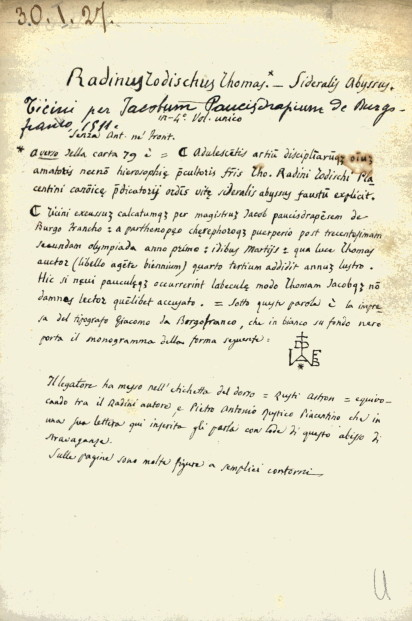 30.1.27.
Radinus Todischus Thomas.* — Sideralis Abyssus.
Ticini per Jacobum Paucisdrapium de Burgo-
franco, 1511.
in-4º. Vol. unico
Senza Ant. nè Front.
* a verso della carta 79 è = ₵ Adulescẽtis artiũ disciplĩarũqȝ oĩuȝ
amatoris necnõ hierosophie p̃cultoris fr̃is Tho. Radini Todischi Pla
centini canõice p̃dicatorij ordĩs vite sideralis abyssus faustũ explicit.
₵ Ticini excussuȝ calcatumqȝ per magistruȝ Jacob paucisdrapẽsem de
Burgo Francho: a parthonopẹo chẹrephoroqȝ puerperio post trecentesimam
secundam olympiada anno primo: idibus Martijs: qua luce Thomas
auctor (libello agẽte biennium) quarto tertium addidit annuȝ lustro.
Hic si nẹui pauculẹqȝ occurrerint labeculẹ modo Thomam Jacobqȝ nõ
damnes lector quẽlibet accusato. = Sotto queste parole è la impre-
sa del tipografo Giacomo da Borgofranco, che in bianco su fondo nero
porta il monogramma della forma seguente:
Il legatore ha messo nell'etichetta del dorso = Rusti Astron = equivo-
cando tra il Radini autore e Pietro Antonio Rustico Piacentino che in
una sua lettera qui inserita gli parla con lode di questo abisso di
stravaganze.
Sulle pagine sono molte figure a semplici contorni